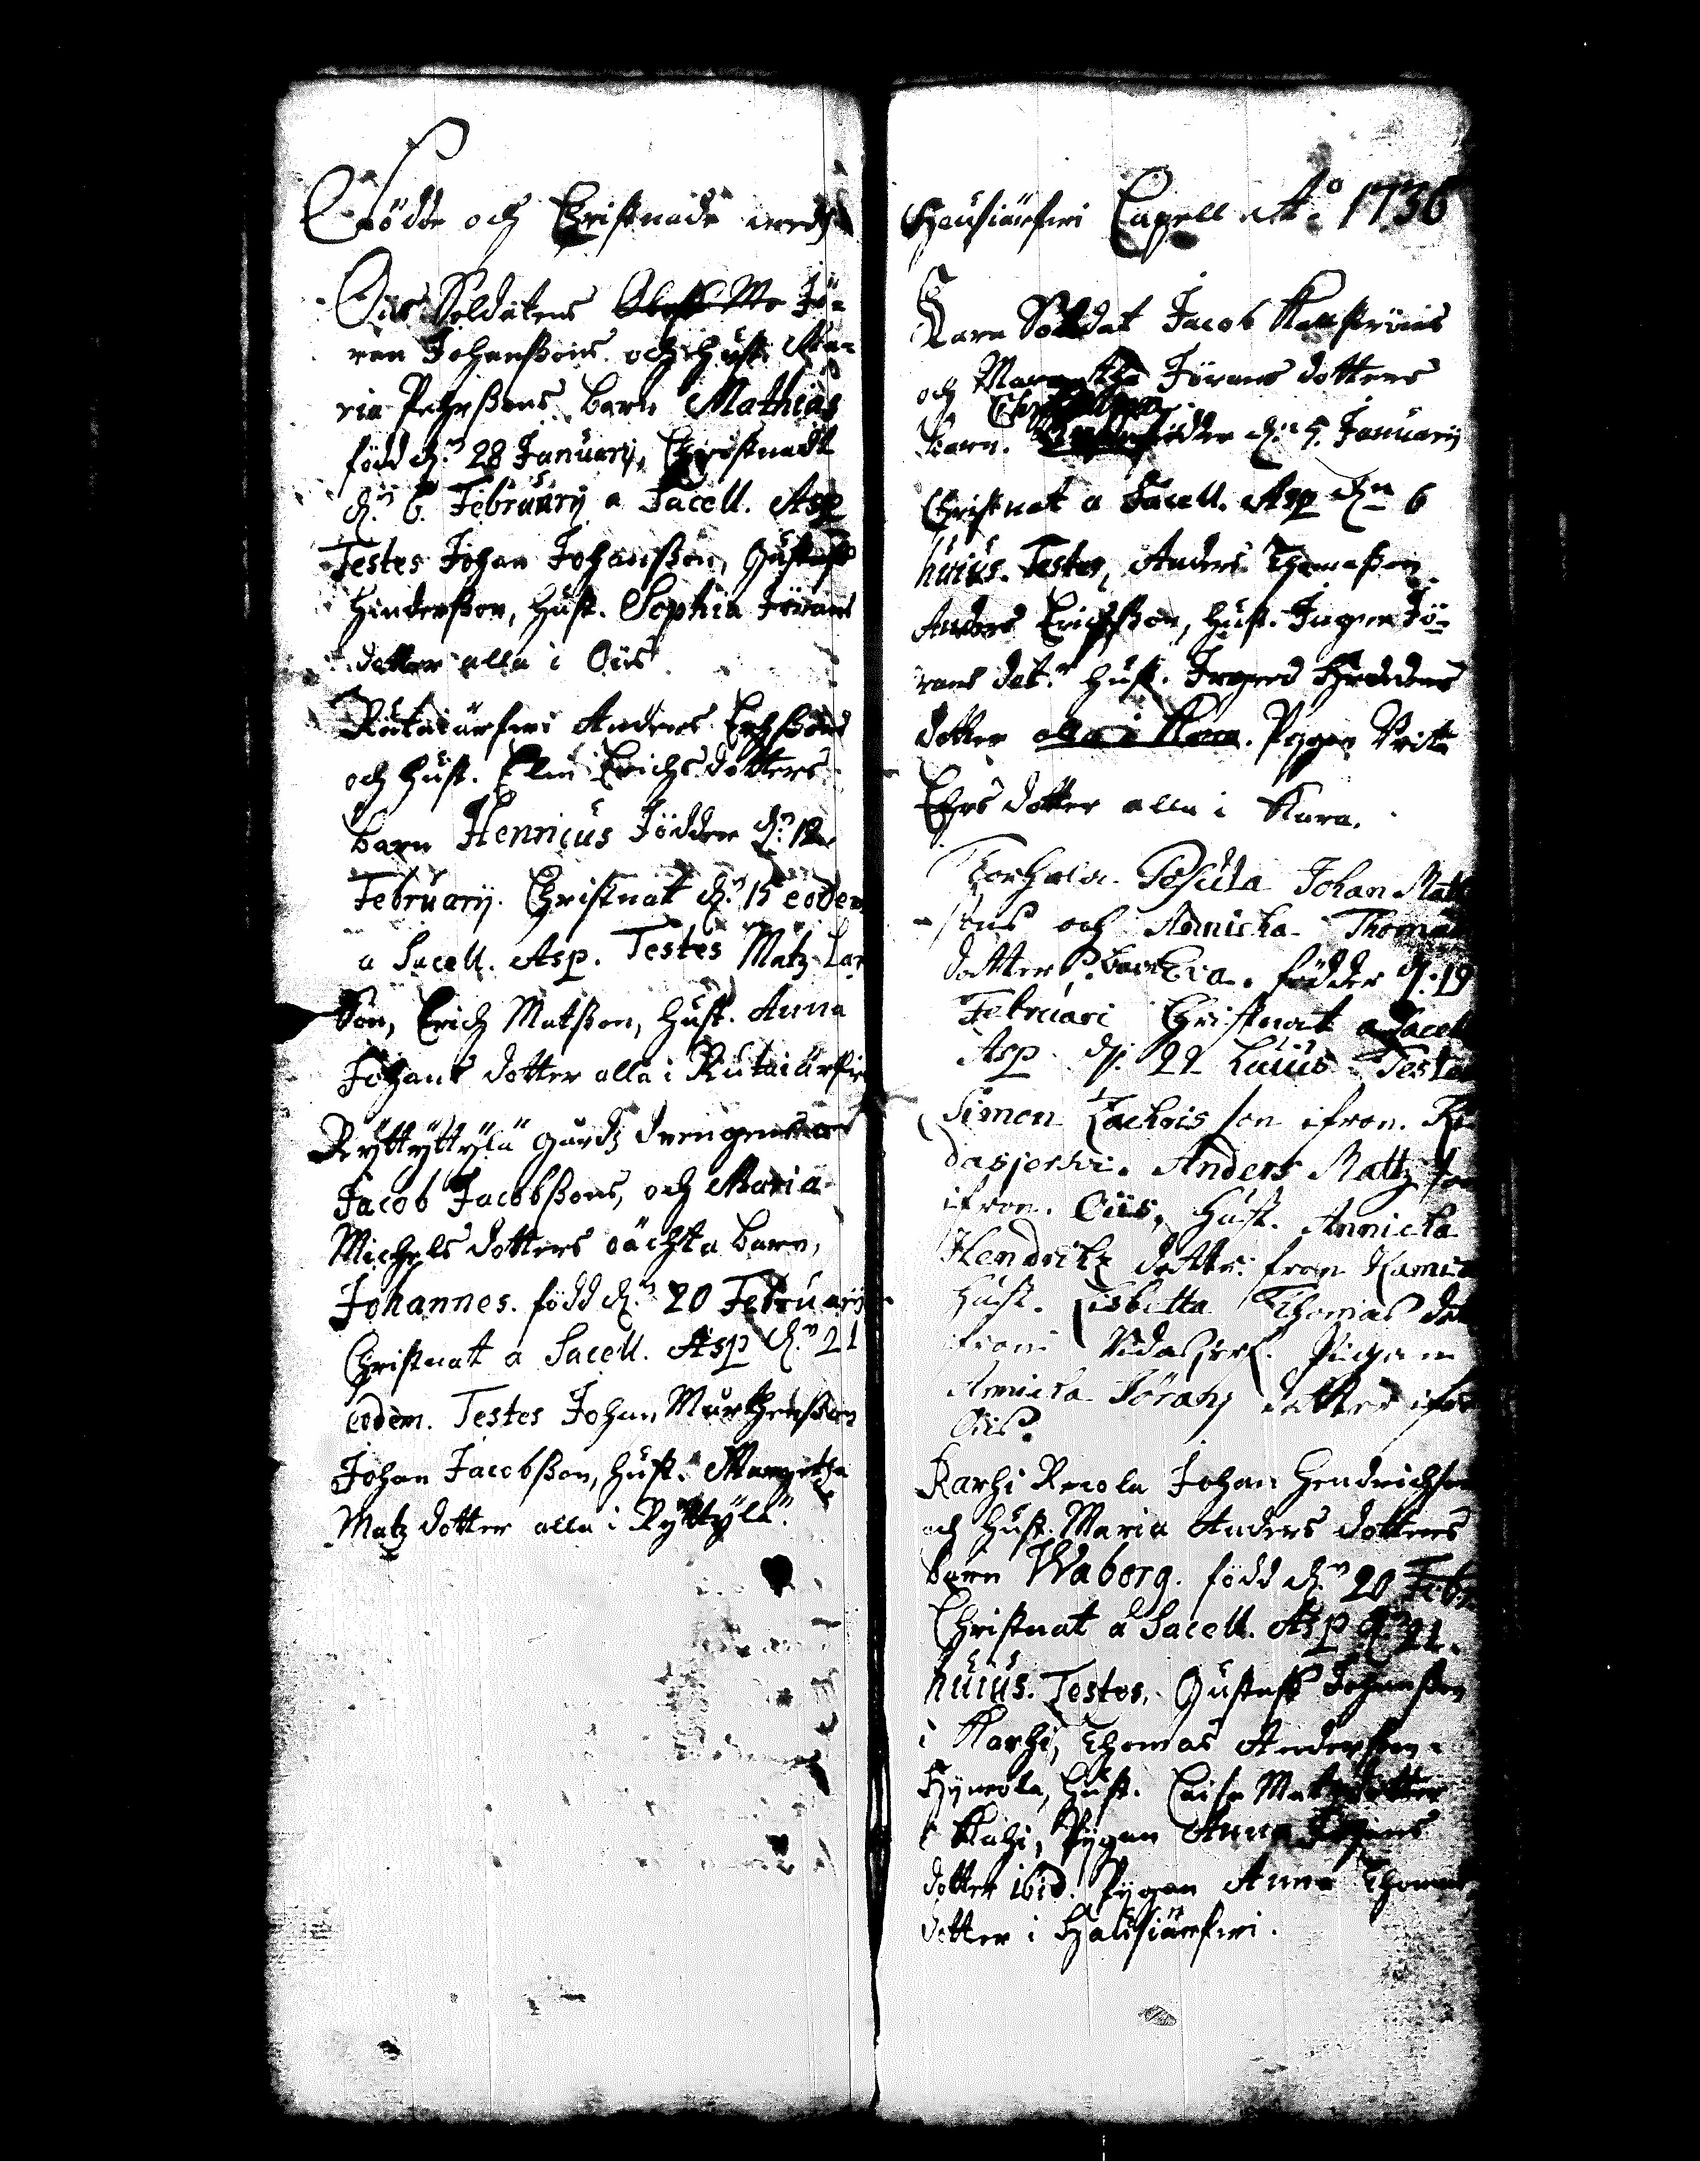 Födde och Christnade wedh
Oiis Soldatens Jö-
ran Johanßons och hust. Ma-
ria Pehrßons barn Mathias
född d:n 28 Januarij, Christnadt
d:n 6. Februarij a Sacell. Asp
Testes Johan Johanßon, Gustaf
Hinderßon, hust. Sophia Jörans
dotter alla i Oiis
Rutaiärfwi Anders Erichßons
och hust. Elin Erichsdotters
barn Henricus födder d:n 12
Februarij. Christnat d:n 15 eodem
a Sacell. Asp. Testes Matz Lar
Son, Erich Matßon, hust. Anna
Johans dotter alla i Rutaiärfwi
Ryttyttylä gårdz drengens
Jacob Jacobßons, och Maria
Michels dotters oächta barn,
Johannes. född d:n 20 Februarij
Christnat a Sacell. Asp d:n 21
eodem. Testes Johan Marthenßon
Johan Jacobßon, hust. Margetha
Matz dotter alla i Ryttylä.
Hausiärfwi Capell A:o 1736
Kara Soldat Jacob
och Jörans dotters
barn. födder d:n 5. Januarij
Christnat a Sacell. Asp d:n 6
huius. Testes, Anders Thomaßon
Anders Erichßon, hust. Ingrin Jö-
rans dot:r hust. Fredens
dotter alla i Kara. Pygan Brita
Ehrs dotter alla i Kara.
Torhola Posula Johan Matt
-sons och Annicka Thomas
dotter S. barn Eva. födder d. 19
Februari Christnat a Sacell
Asp d. 22 huius Testes
Simon Zachris son ifron. Ri
dasjerfvi. Anders Mattz son
ifron. Oiis, hust. Annicka
Hendrichz dotter from
Hust. Lisbetta Thomas dot
ifrom Ridasjerf. Pigan
Annicka Jöranz dotter ifr
Oiis.
Karhi Recola Johan Hendrichson
och hust. Maria Anders dotters
barn Waborg. född d:n 20 Feb
Christnat a Sacell. Asp d:n 21.
huius. Testes, Gustaff Johanßon
i Karhi, Thomas Anderßon
hust. Caisa Matzdotter
i Kahi, Pygan Anna Johans
dotter ibid. Pygan Anna Thomas
dotter i Hausiärfwi.